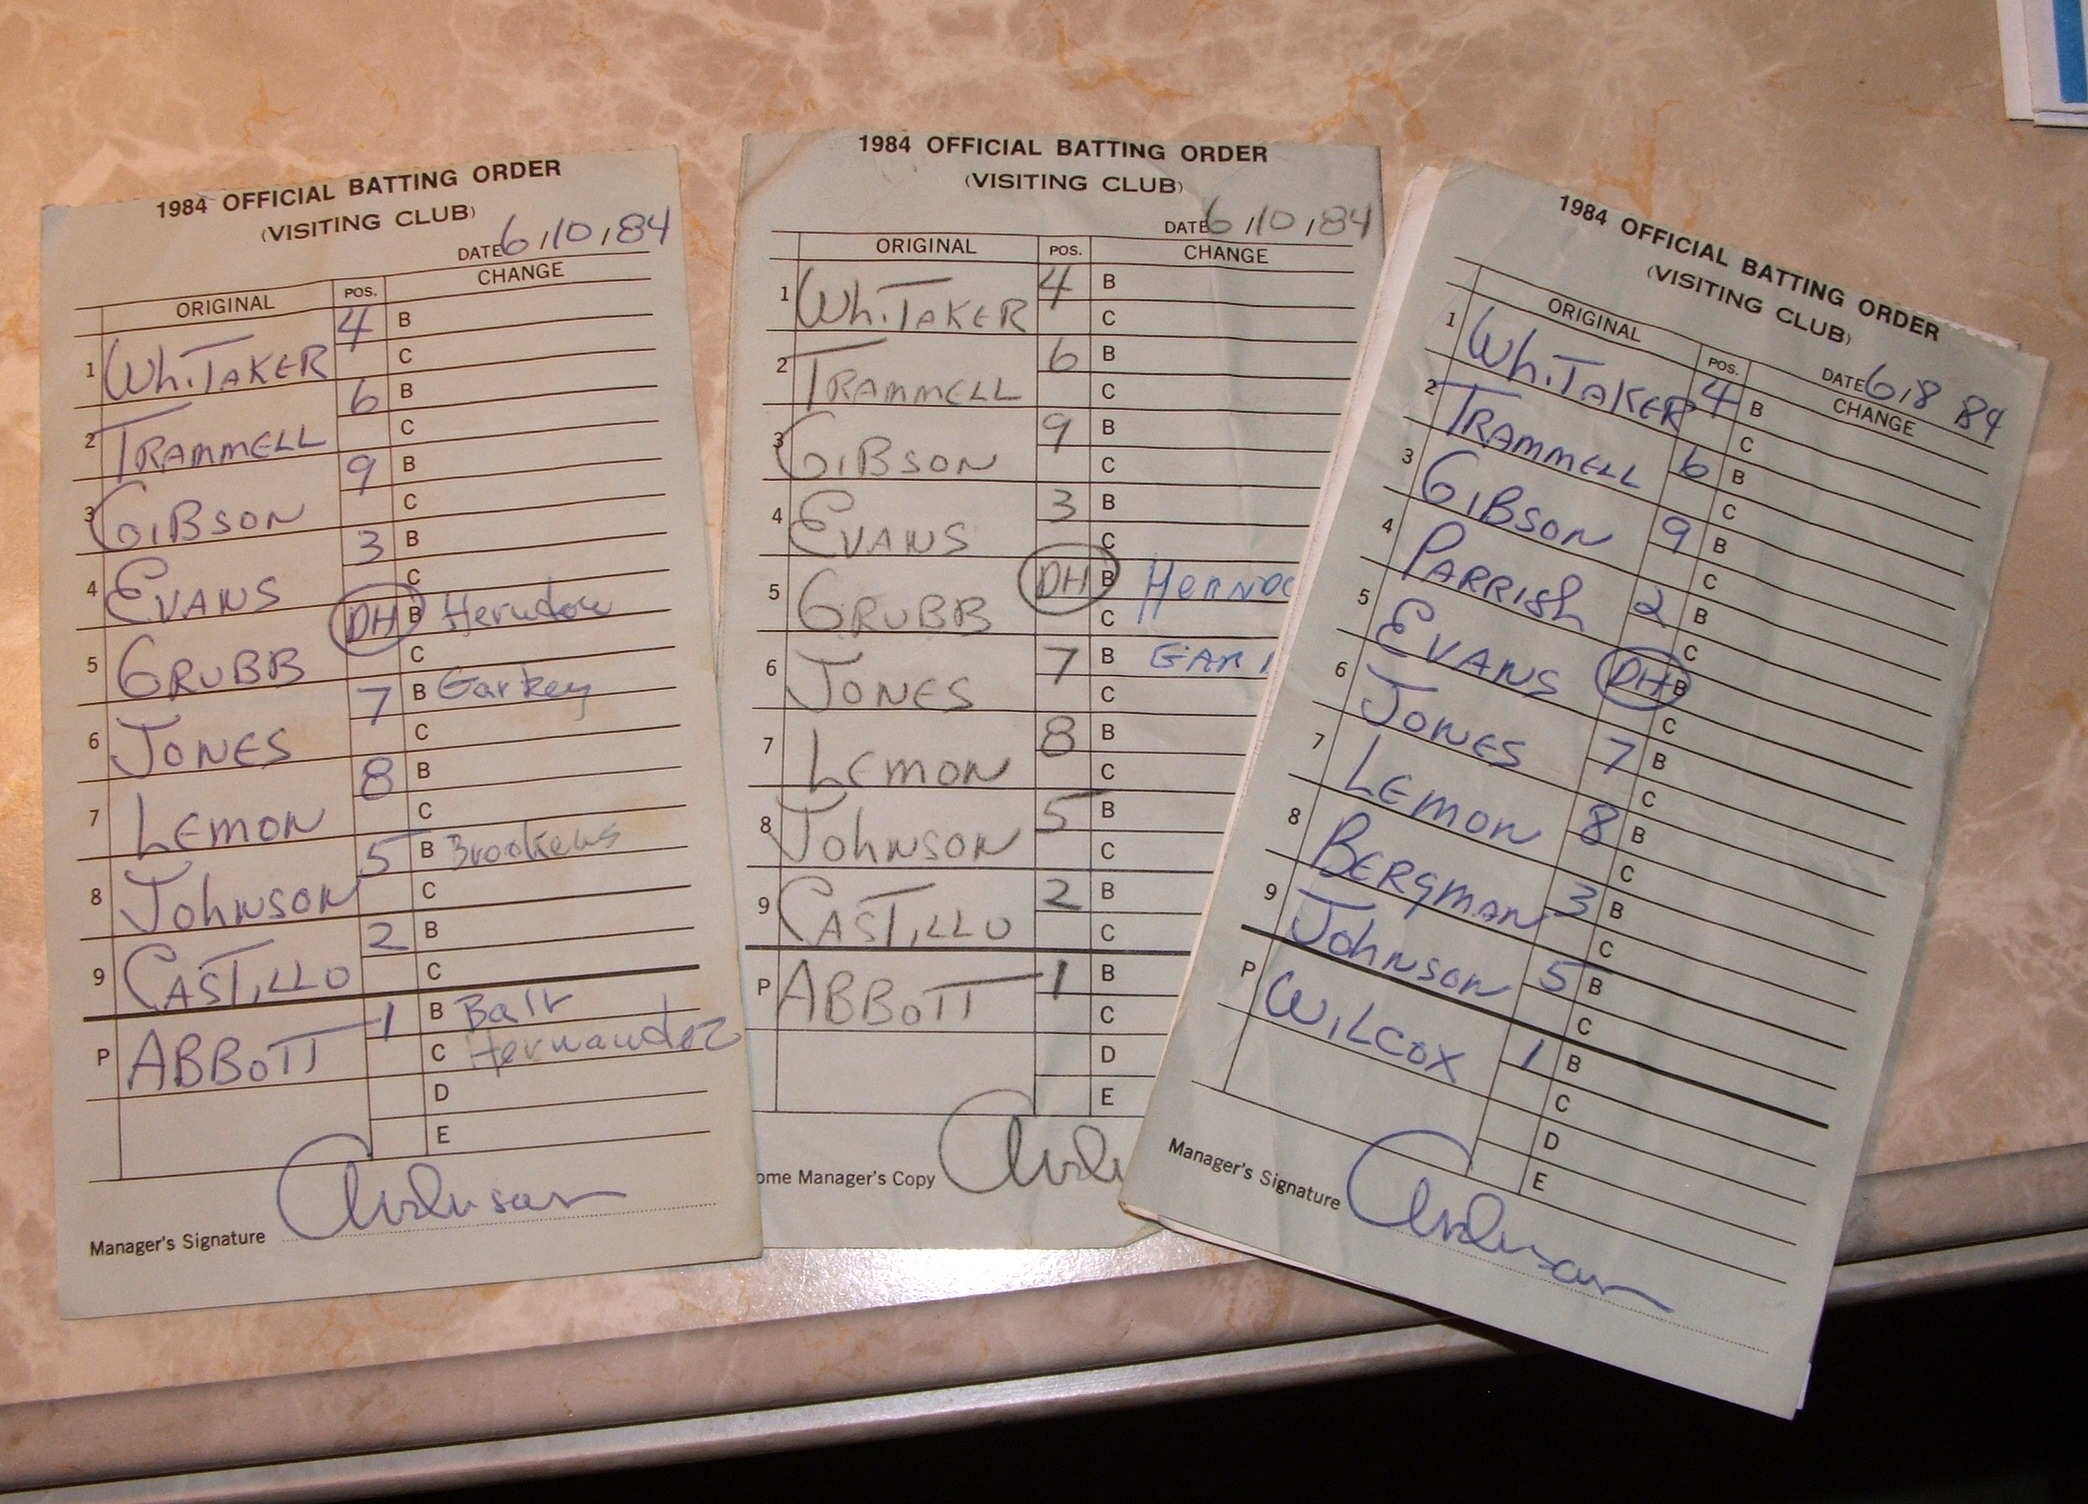 1984 OFFICIAL BATTING ORDER
(VISITING CLUB)
DATE 6/10/84
ORIGINAL POS. CHANGE
1 WhiTAKER 4 B
C
2 TRAMMELL 6 B
C
3 GIBSON 9 B
C
4 EVANS 3 B
C
5 GRUBB DH B
C
6 JONES 7 B
C
7 LEMON 8 B
C
8 JOhNSON 5 B Brookens
C
9 CASTILLO 2 B
C
P ABBOTT 1 B Bair
C Hernandez
D
E
Manager's Signature Anderson
1984 OFFICIAL BATTING ORDER
(VISITING CLUB)
DATE 6/10/84
ORIGINAL POS. CHANGE
1 WhiTAKER 4 B
C
2 TRAMMELL 6 B
C
3 GIBSON 9 B
C
4 EVANS 3 B
C
5 GRUBB DH B
C
6 JONES 7 B
C
7 LEMON 8 B
C
8 JOhNSON 5 B
C
9 CASTILLO 2 B
C
P ABBOTT 1 B
C
D
E
ome Manager's Copy
1984 OFFICIAL BATTING ORDER
(VISITING CLUB)
DATE 6/8 84
ORIGINAL POS. CHANGE
1 WhiTAKER 4 B
C
2 TRAMMELL 6 B
C
3 GIBSON 9 B
C
4 PARRISh 2 B
C
5 EVANS DH B
C
6 JONES 7 B
C
7 LEMON 8 B
C
8 BERGMAN 3 B
C
9 JOhNSON 5 B
C
P WILCOX 1 B
C
D
E
Manager's Signature Anderson